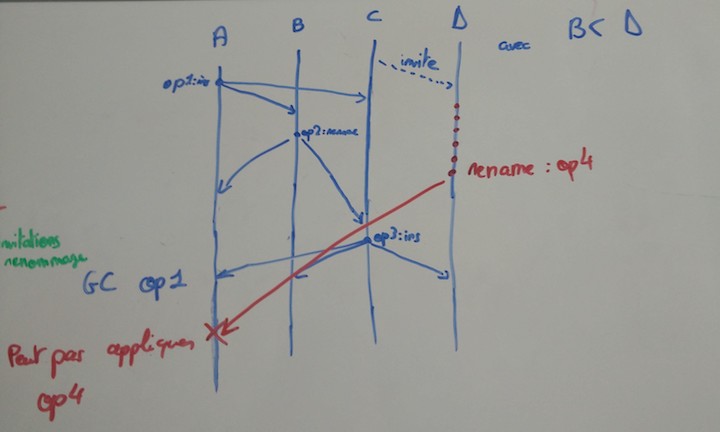 A B C D avec B < D
invite
op1:ins
op2:rename
rename : op4
op3:ins
invitations
renommage
GC op1
Peut pas appliquer
op4